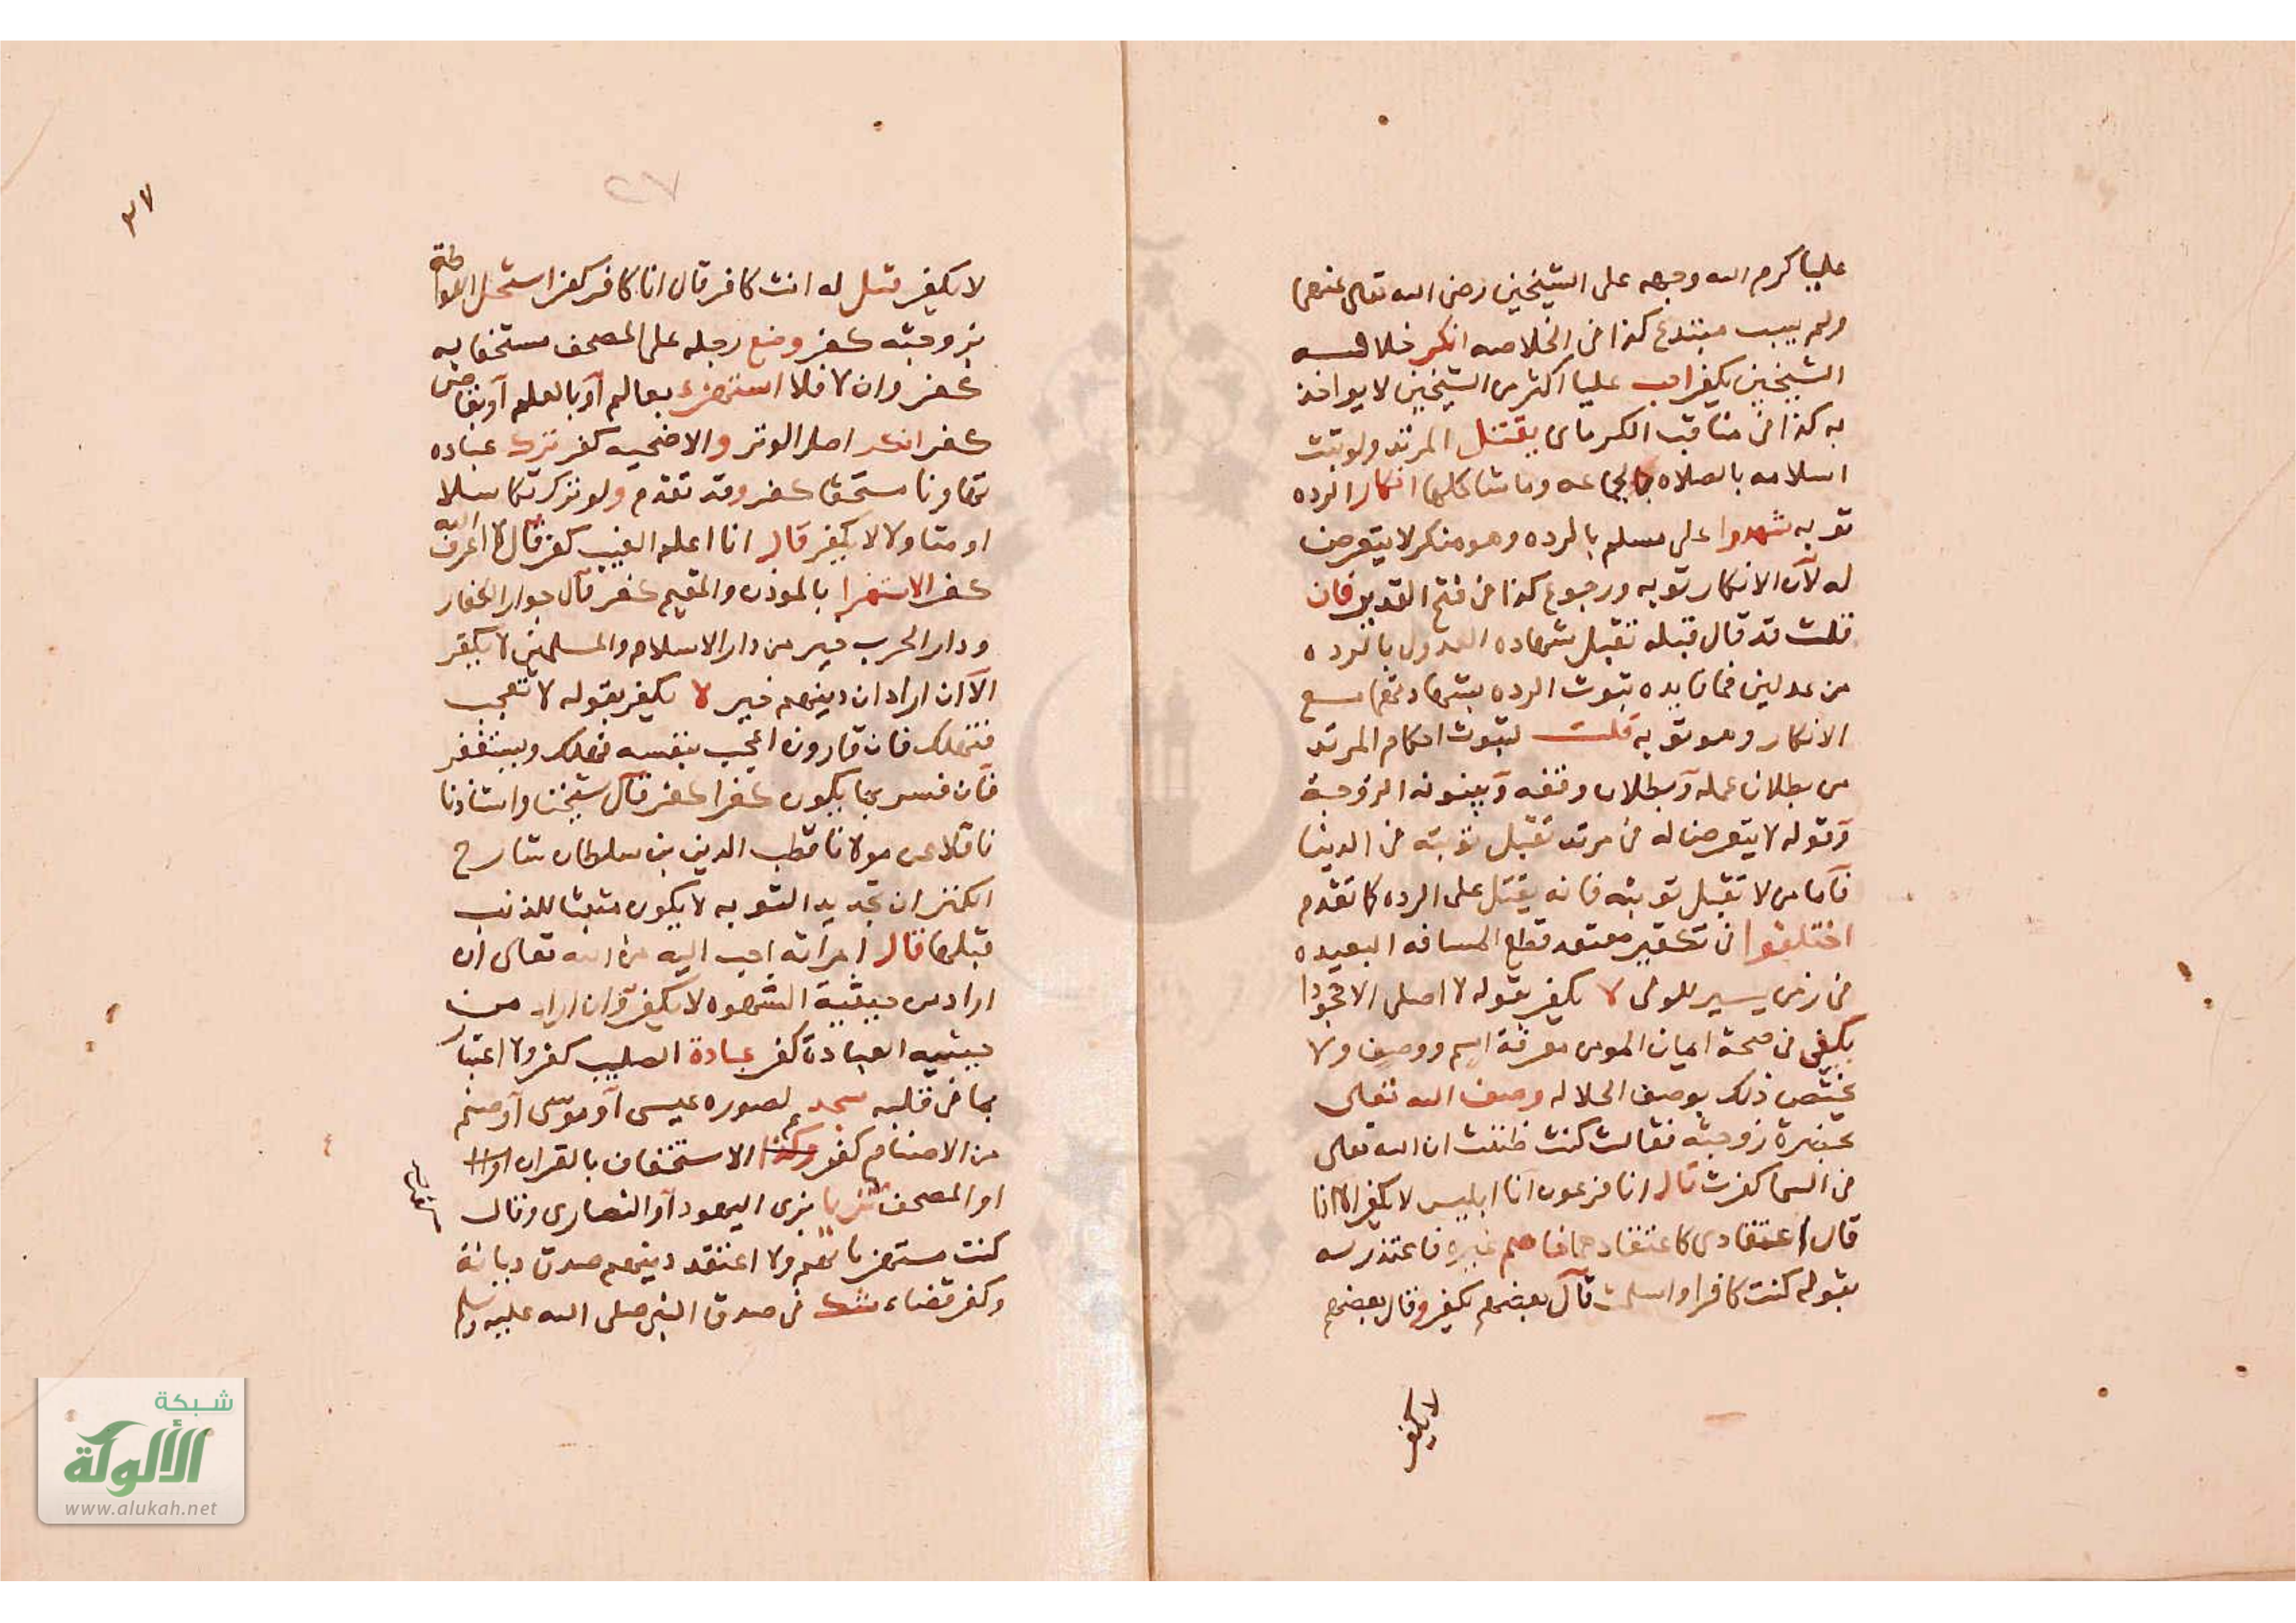 عليا كرم الله وجهه على الشيخين رضى الله تعالى عنهما
ولم يسب مبتدع كذا فى الخلاصه انكر خلافه
الشيخين يكفر احب عليا اكثر من الشيخين لا يواخذ
به كذا فى مناقب الكرماى يقتل المرتد ولو ثبت
اسلامه بالصلاه بالجماعه وما شاكلها انكار الرده
توبه شهدوا على مسلم بالرده وهو منكر لا يتعرض
له لان الانكار توبه ورجوع كذا فى فتح القدير فان
قلت قد قال قبله تقبل شهاده العدول بالرده
من عدلين فما فايده ثبوت الرده بشهادتهما مع
الانكار وهو توبه قلت لثبوت احكام المرتد
من بطلان عمله وبطلان وقفه وبينونه الزوجة
وقوله لا يتعرض له فى مرتد تقبل توبته فى الدنيا
فاما من لا تقبل توبته فانه يقتل على الرده كما تقدم
اختلفوا فى تكفير معتقد قطع المسافه البعيده
فى زمن يسير للولى لا يكفر بقوله لا اصلى الا جحودا
يكفى فى صحة ايمان المومن معرفة اسم ووصف ولا
يختص ذلك بوصف الجلاله وصف الله تعالى
بحضرة زوجته فقالت كنت ظننت ان الله تعالى
فى السما كفرت قال انا فرعون انا ابليس لا يكفر الا اذا
قال اعتقادى كاعتقادهما خاصم غيره فاعتذر له
بقوله كنت كافرا واسلمت قال بعضهم يكفر وقال بعضهم
لا يكفر
٢٧
٣٧
لا يكفر قيل له انت كافر قال انا كافر كفر استحل اللواطة
بزوجته كفر وضع رجله على المصحف مستخفا به
كفر وان لا فلا استهزء بعالم او بالعلم او بقاضى
كفر انكر اصل الوتر والاضحيه كفر ترك عباده
تهاونا مستخفا كفر وقد تقدم ولو تركه تكاسلا
او متاولا لا يكفر قال انا اعلم الغيب كفر قال لا اعرف الله
كفر الاستهزا بالموذن والمقيم كفر قال جوار الكفار
ودار الحرب خير من دار الاسلام والمسلمين لا يكفر
الا ان اراد ان دينهم خير لا يكفر بقوله لا تعجب
فتهلك فان قارون اعجب بنفسه فهلك ويستفسر
فان فسر بما يكون كفرا كفر قال شيخنا واستاذنا
ناقلا عن مولانا قطب الدين بن سلطان شارح
الكنز ان تجديد التوبه لا يكون مثبتا للذنب
قبلها قال امراته احب اليه من الله تعالى ان
اراد من حيثية الشهوه لا يكفر وان اراد من
حيثيه العبادة كفر عبادة الصليب كفر ولا اعتبار
بما فى قلبه سجد لصوره عيسى او موسى او صنم
من الاصنام كفر وكذا الاستخفاف بالقران او
او المصحف تزيا بزى اليهود او النصارى وقال
كنت مستهزيا بهم ولا اعتقد دينهم صدق ديانة
وكفر قضاء شك فى صدق النبى صلى الله عليه وسلم
شبكة
الألوكة
www.alukah.net